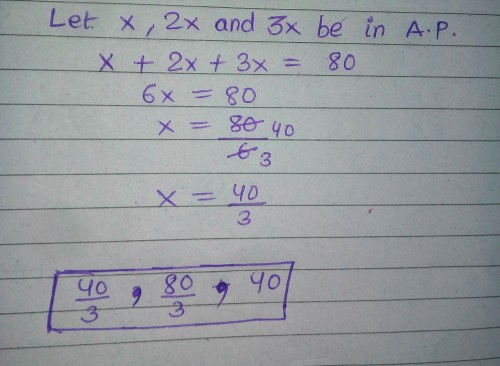 Let x, 2x and 3x be in A.P.
x + 2x + 3x = 80
6x = 80
x = 80/6 40/3
x = 40/3
40/3 , 80/3 , 40